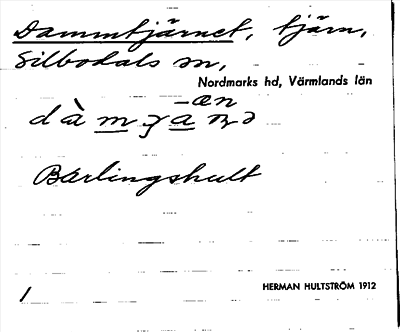 Dammtjärnet, tjärn,
Silbodals sn,
Nordmarks hd, Värmlands län
-æn
Bärlingshult
1 HERMAN HULTSTRÖM 1912